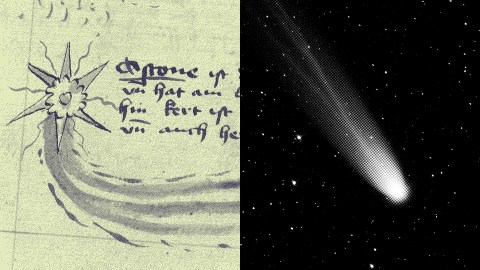 ist
vn̄ hat am
hin kert ist
vn̄ auch he